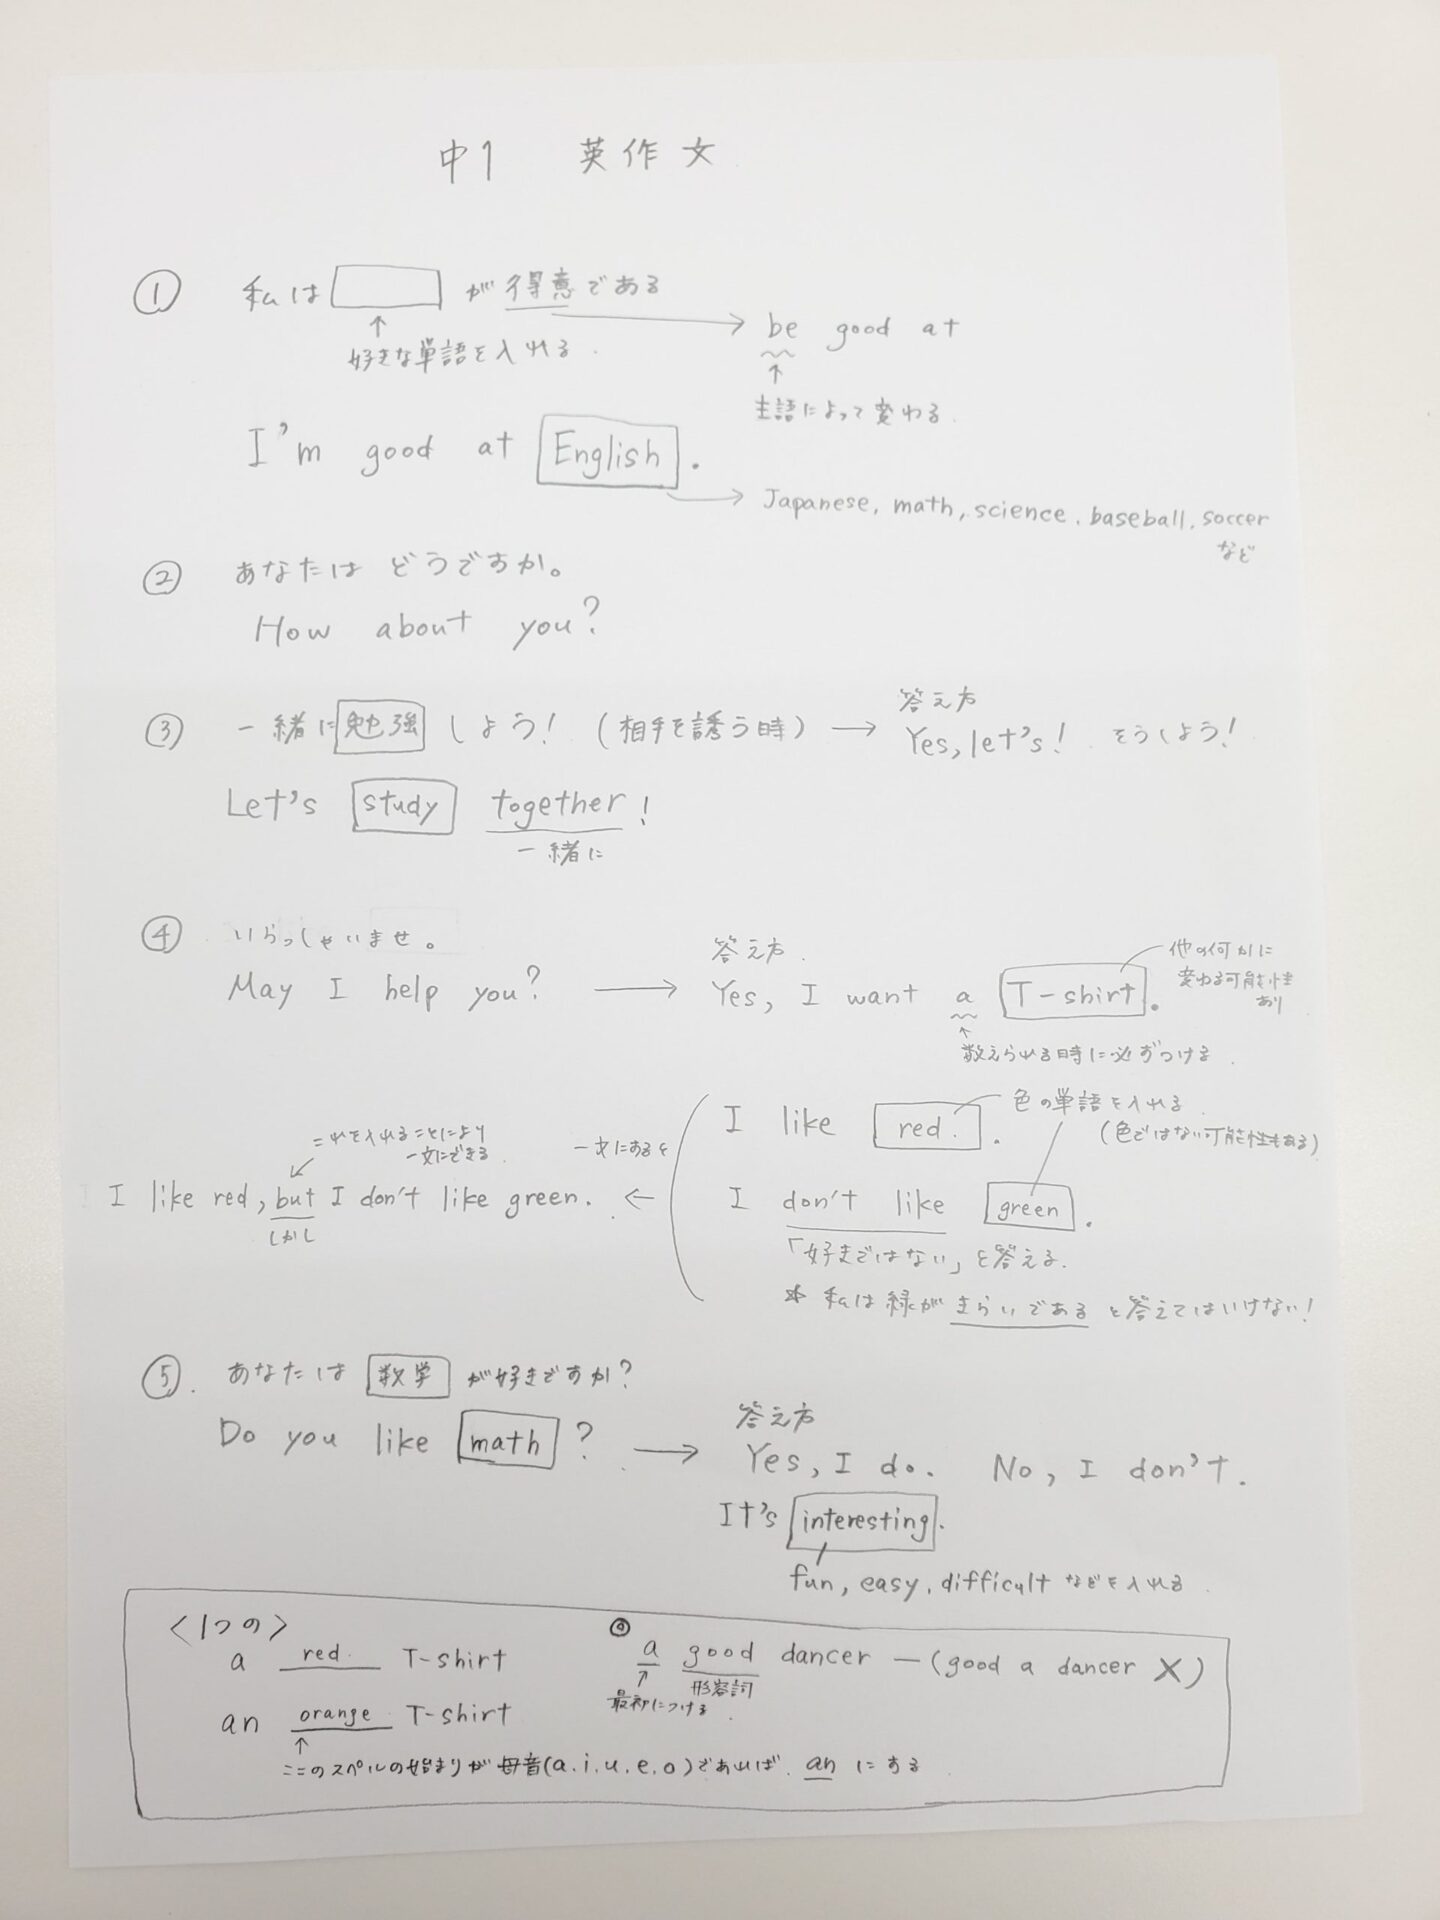 中1 英作文
① 私は が得意である
好きな単語を入れる.
be good at
主語によって変わる.
I'm good at English.
Japanese, math, science, baseball, soccer
など
② あなたは どうですか。
How about you?
③ 一緒に勉強しよう! (相手を誘う時) → 答え方
Yes, let's! そうしよう!
Let's study together!
一緒に
④ いらっしゃいませ。
May I help you? → 答え方.
Yes, I want a T-shirt.
他の何かに
変わる可能性
あり
数えられる時に必ずつける.
I like red.
色の単語を入れる.
(色ではない可能性もある)
I don't like green.
「好きではない」と答える.
* 私は緑がきらいであると答えてはいけない!
一文にすると
これを入れることにより
一文にできる.
I like red, but I don't like green. ←
しかし
⑤. あなたは 数学 が好きですか?
Do you like math? → 答え方
Yes, I do. No, I don't.
It's interesting.
fun, easy, difficult などを入れる.
<1つの>
a red. T-shirt
an orange T-shirt
ここのスペルの始まりが母音(a.i.u.e.o)であれば. an にする
◎ a good dancer — (good a dancer ×)
最初につける.
形容詞